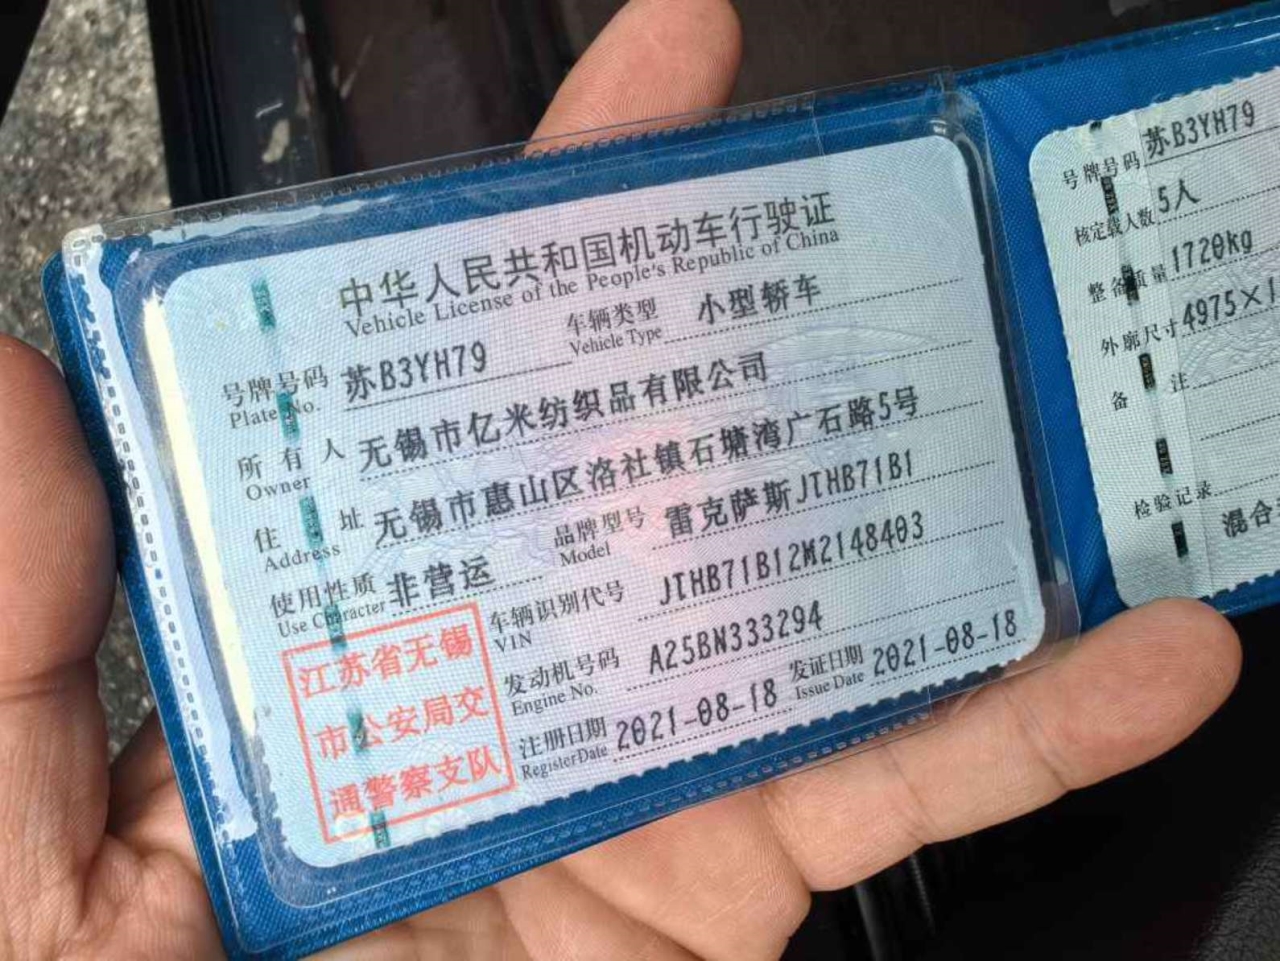 中华人民共和国机动车行驶证
Vehicle License of the People's Republic of China
号牌号码 苏B3YH79 车辆类型 小型轿车
Plate No. Vehicle Type
所有人 无锡市亿米纺织品有限公司
Owner
住址 无锡市惠山区洛社镇石塘湾广石路5号
Address
使用性质 非营运 品牌型号 雷克萨斯JTHB71B1
Use Character Model
车辆识别代号 JTHB71B12M2148403
VIN
发动机号码 A25BN333294
Engine No.
注册日期 2021-08-18 发证日期 2021-08-18
Register Date Issue Date
江苏省无锡
市公安局交
通警察支队
号牌号码 苏B3YH79
核定载人数 5人
整备质量 1720kg
外廓尺寸 4975×1
备注
检验记录
混合